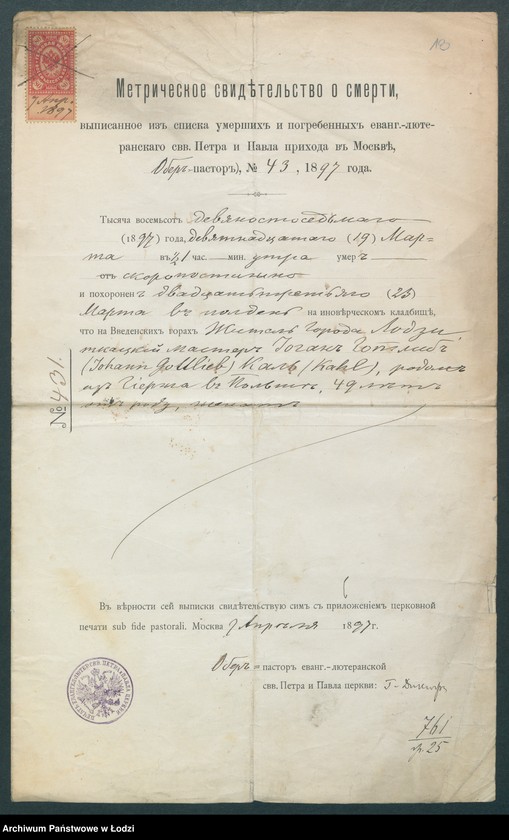 7 Апр. 1897
Метрическое свидѣтельство о смерти,
выписанное изъ списка умершихъ и погребенныхъ еванг.-люте-
ранскаго свв. Петра и Павла прихода въ Москвѣ,
Оберъ-пасторъ), № 43, 1897 года.
Тысяча восемьсотъ девяностоседьмаго
(1897) года, девятнадцатаго (19) Мар-
та въ ½1 час. мин. утра умеръ
отъ скоропостижно
и похороненъ двадцать третьяго (23)
Марта въ полдень на иновѣрческомъ кладбищѣ,
что на Введенскихъ горахъ Житель города Лодзи,
ткацкій мастеръ Іоганъ Готлибъ
(Johann Gottlieb) Каль (Kahl), родомъ
изъ Згержа въ Польшѣ, 49 лѣтъ
отъ роду, женатъ
№ 431.
Въ вѣрности сей выписки свидѣтельствую симъ съ приложеніемъ церковной
печати sub fide pastorali. Москва 7 Апрѣля 1897 г.
Оберъ-пасторъ еванг.-лютеранской
свв. Петра и Павла церкви: Г. Дикгофъ
761
25
Archiwum Państwowe w Łodzi